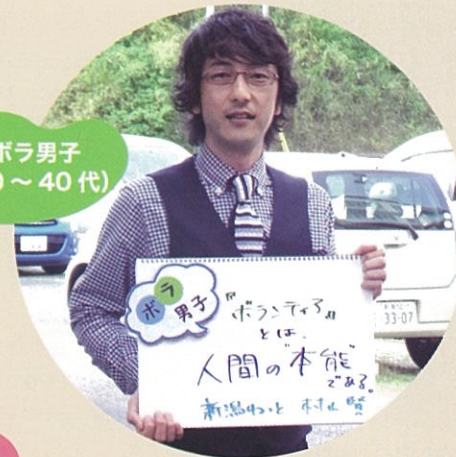 ボラ男子
～40代)
ボラ
男子
『ボランティア』
とは、
人間の"本能"
である。
新潟ねっと 村上 賢
33-07